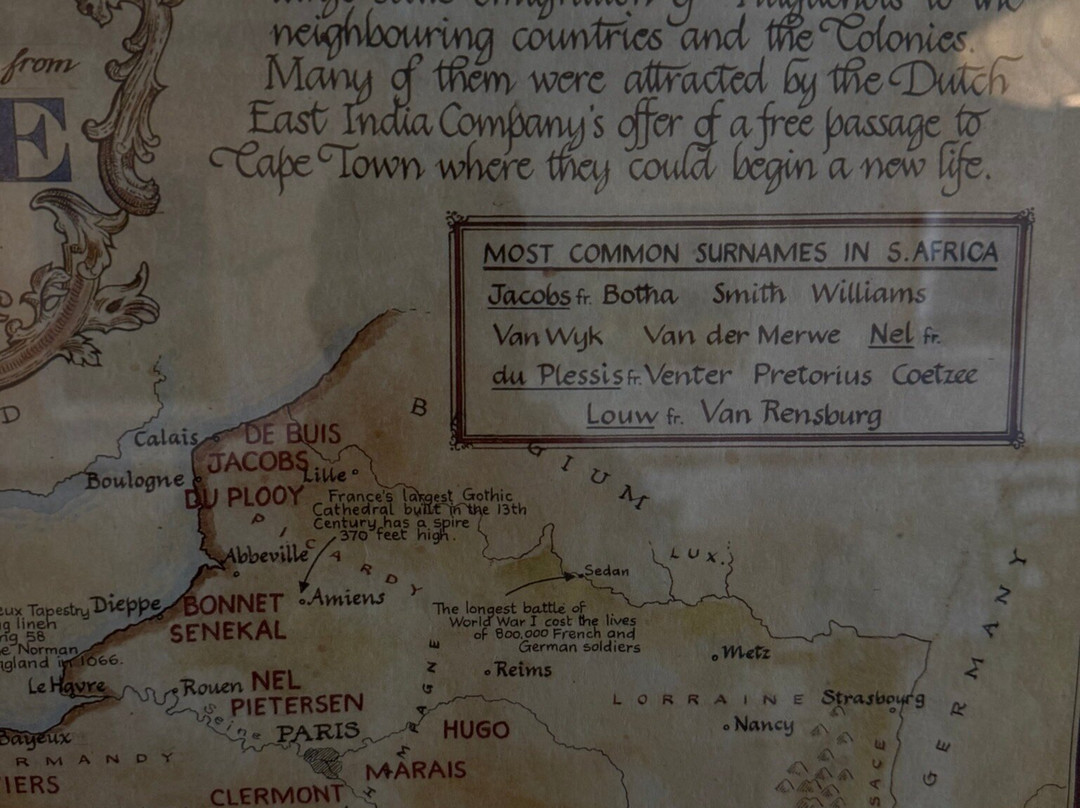 neighbouring countries and the Colonies.
from
Many of them were attracted by the Dutch
East India Company's offer of a free passage to
E
Cape Town where they could begin a new life.
MOST COMMON SURNAMES IN S.AFRICA
Jacobs fr. Botha Smith Williams
Van Wyk Van der Merwe Nel fr.
du Plessis fr. Venter Pretorius Coetzee
Louw fr. Van Rensburg
D
BELGIUM
Calais
DE BUIS
JACOBS
Lille
Boulogne
DU PLOOY
France's largest Gothic
Cathedral built in the 13th
Century has a spire
370 feet high.
PICARDY
Abbeville
LUX.
Sedan
GERMANY
eux Tapestry
Dieppe
BONNET
Amiens
SENEKAL
The longest battle of
World War I cost the lives
of 800,000 French and
German soldiers
ng 58
e Norman
ngland in 1066.
Metz
Reims
Le Havre
Rouen
NEL
PIETERSEN
LORRAINE
Strasbourg
Seine
PARIS
HUGO
Nancy
Bayeux
RMANDY
MARAIS
IERS
CLERMONT